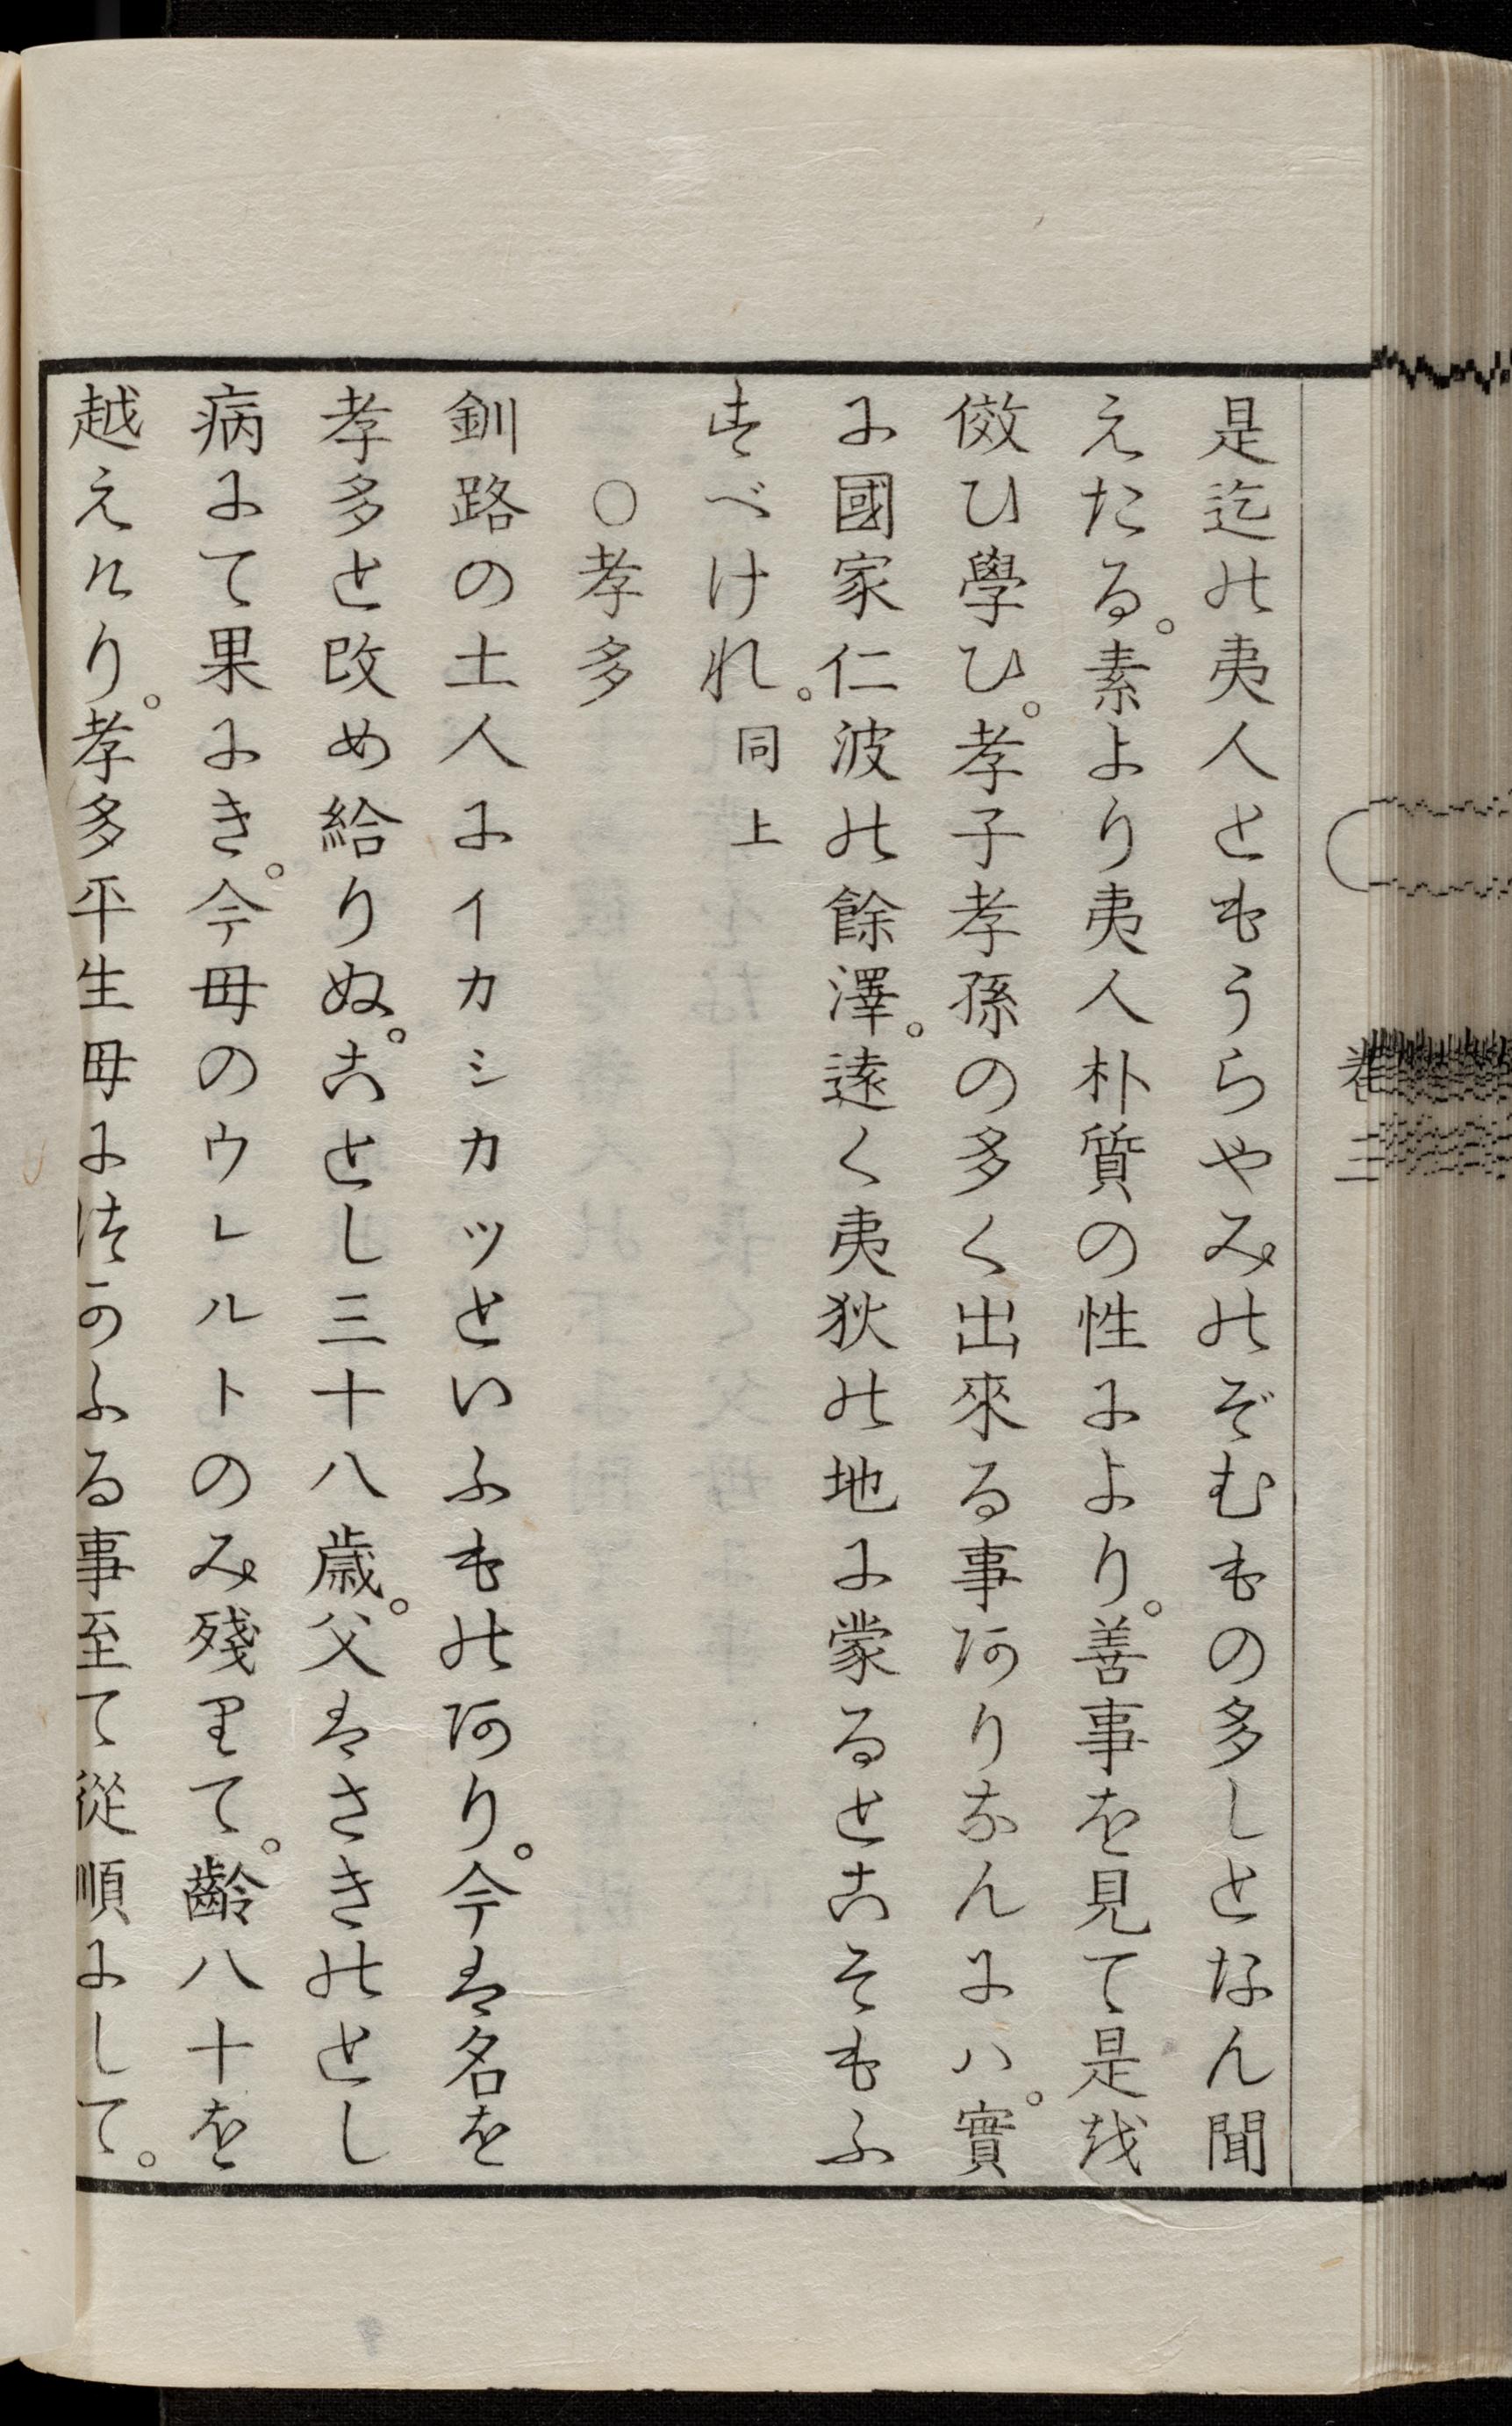 是迄の夷人ともうらやみのぞむもの多しとなん聞
えたる。素より夷人朴質の性により。善事を見て是を
傚ひ學ひ。孝子孝孫の多く出來る事ありなんにハ。實
に國家仁波の餘澤。遠く夷狄の地に蒙るとこそもふ
すべけれ。同上
○孝多
釧路の土人にイカシカツといふものあり。今は名を
孝多と改め給りぬ。ことし三十八歳。父はさきのとし
病にて果にき。今母のウレルトのみ殘りて。齡八十を
越えけり。孝多平生母につかふる事至て從順にして。
卷三